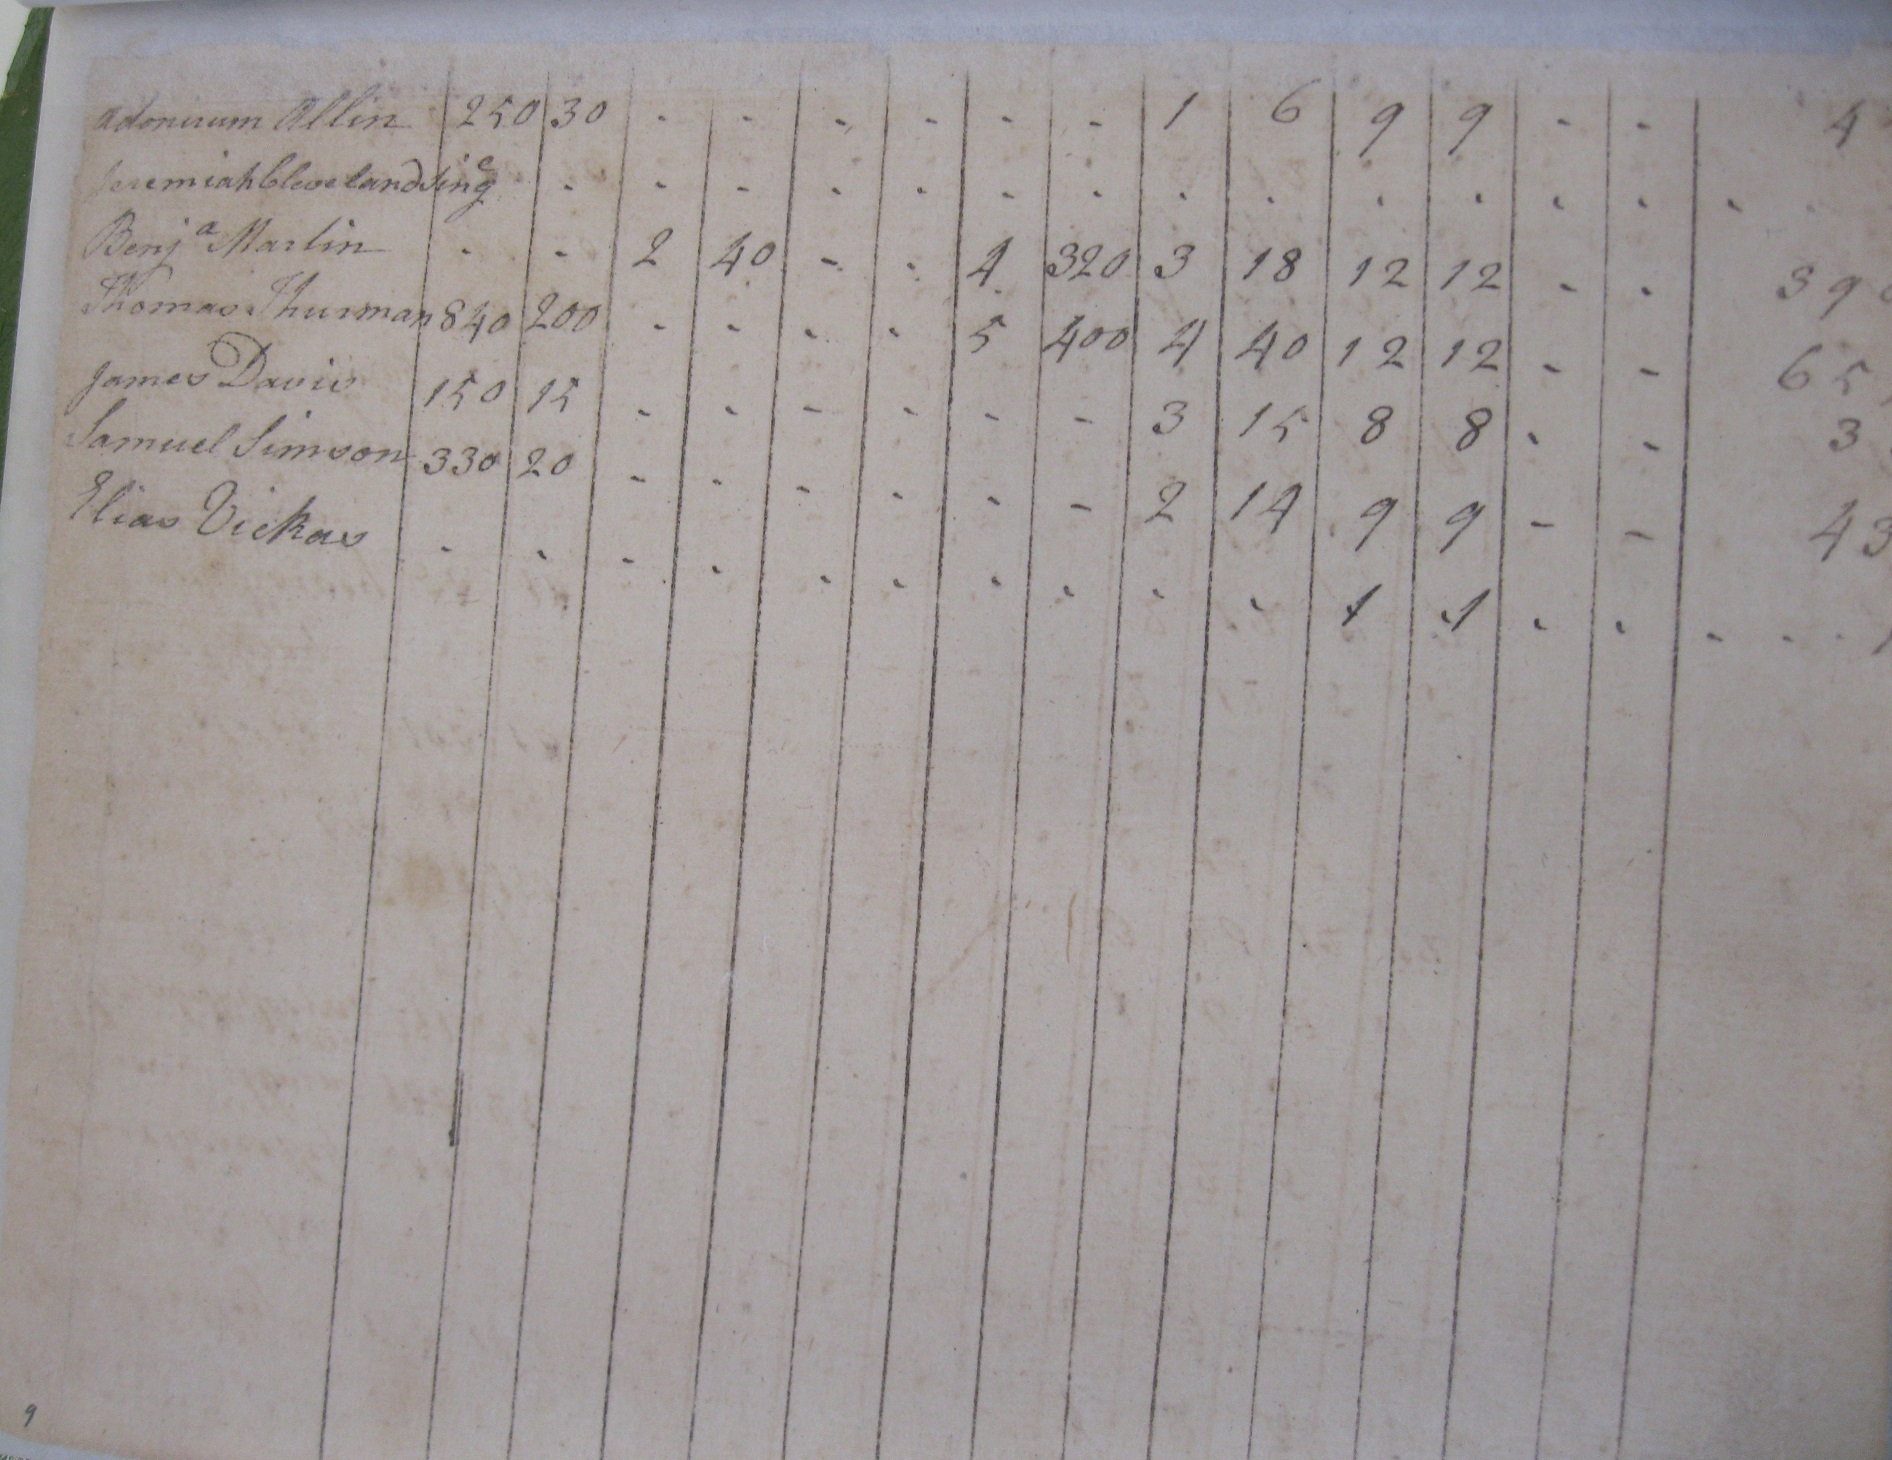 Adonirum Allin 250 30 - - - - - - 1 6 9 9 - - 4
Jeremiah Cleveland Singe - - - - - - - - - - - - - -
Benja Martin - - 2 40 - - 4 320 3 18 12 12 - - 390
Thomas Thurman 840 200 - - - - 5 400 4 40 12 12 - - 65
James Davis 150 15 - - - - - - 3 15 8 8 - - 3
Samuel Simson 330 20 - - - - - - 2 14 9 9 - - 43
Elias Vickas - - - - - - - - - - 1 1 - - - - - 1
9